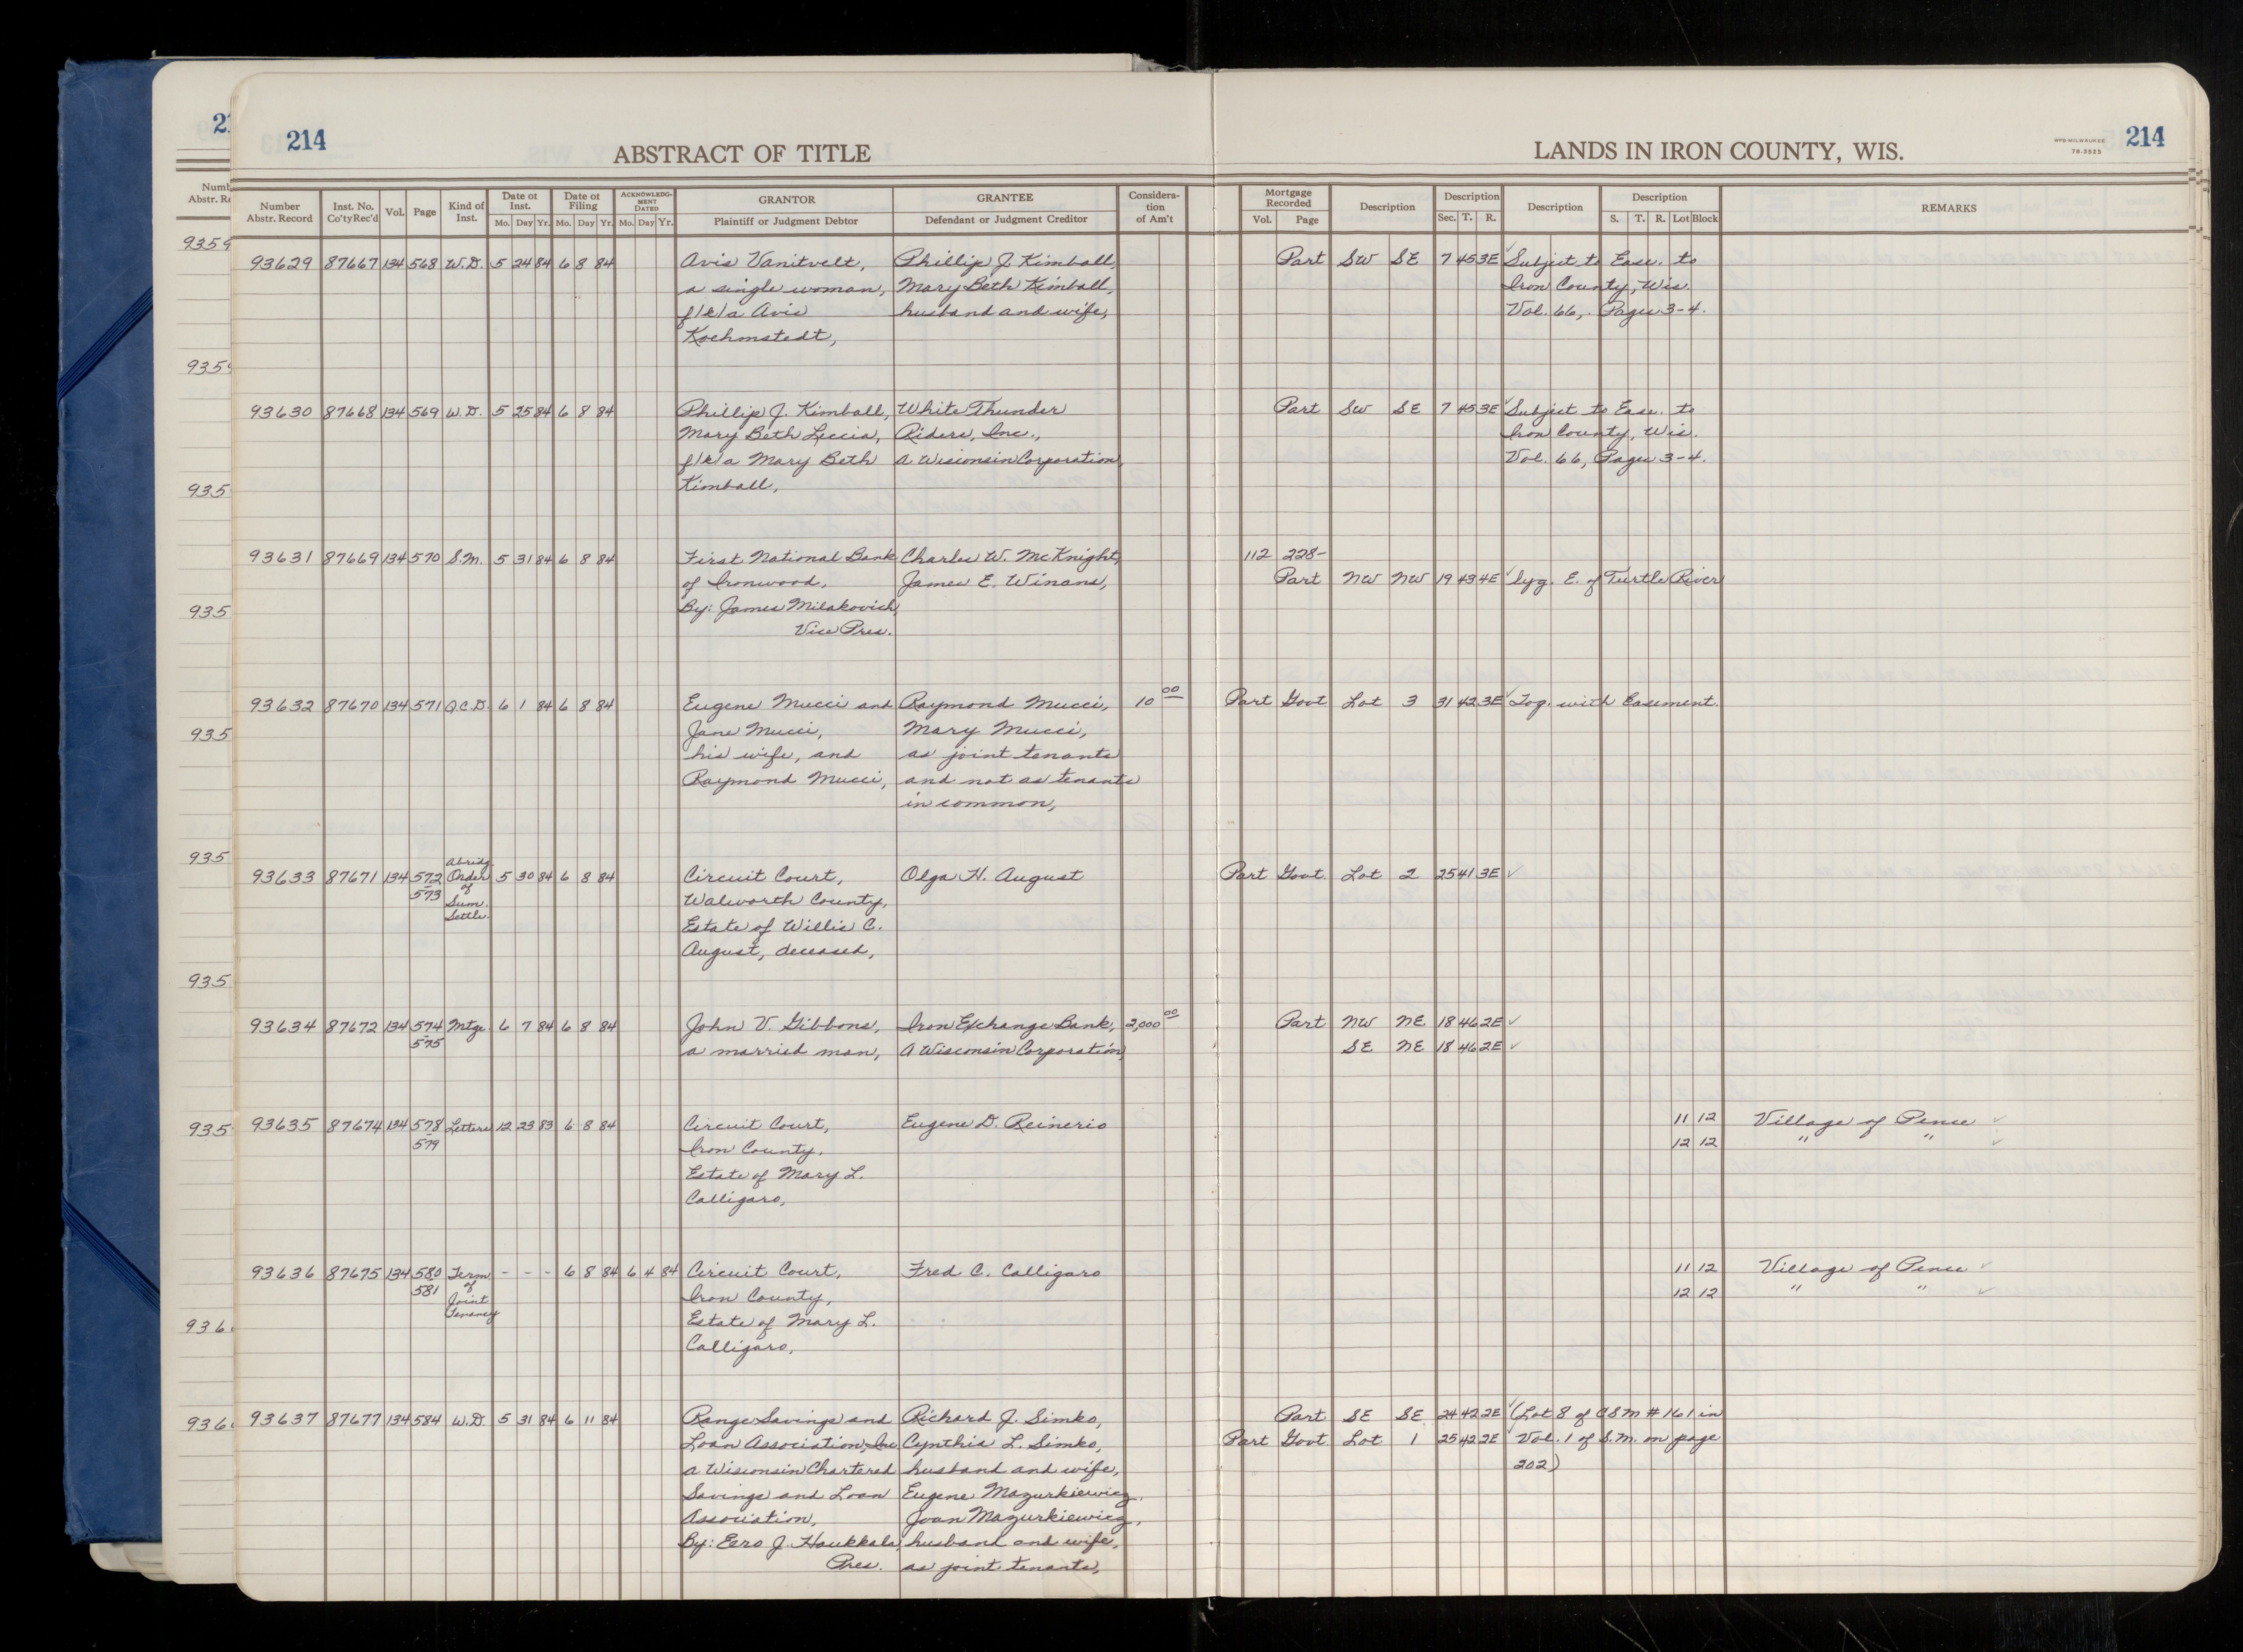 214
ABSTRACT OF TITLE
LANDS IN IRON COUNTY, WIS.
WPB-MILWAUKEE
78-3525
214
Number Abstr. Record | Inst. No. Co'ty Rec'd | Vol. | Page | Kind of Inst. | Date of Inst. Mo. Day Yr. | Date of Filing Mo. Day Yr. | ACKNOWLEDGMENT DATED Mo. Day Yr. | GRANTOR Plaintiff or Judgment Debtor | GRANTEE Defendant or Judgment Creditor | Consideration of Am't | Mortgage Recorded Vol. Page | Description | Description Sec. T. R. | Description | Description S. T. R. Lot Block | REMARKS
93629 87667 134 568 W.D. 5 24 84 6 8 84 Avis Vanitvelt, Phillip J. Kimball, Part SW SE 7 45 3E ✓ Subject to Ease. to
a single woman, Mary Beth Kimball, Iron County, Wis.
f/k/a Avis husband and wife, Vol. 66, Pages 3-4.
Koehmstedt,
93630 87668 134 569 W.D. 5 25 84 6 8 84 Phillip J. Kimball, White Thunder Part SW SE 7 45 3E ✓ Subject to Ease. to
Mary Beth Leccia, Riders, Inc., Iron County, Wis.
f/k/a Mary Beth A Wisconsin Corporation, Vol. 66, Pages 3-4.
Kimball,
93631 87669 134 570 S.M. 5 31 84 6 8 84 First National Bank Charles W. McKnight, 112 228-
of Ironwood, James E. Winans, Part NW NW 19 43 4E ✓ lyg. E. of Turtle River
By: James Milakovich,
Vice Pres.
93632 87670 134 571 Q.C.D. 6 1 84 6 8 84 Eugene Mucci and Raymond Mucci, 10 00 Part Govt Lot 3 31 42 3E ✓ Tog. with Easement.
Jane Mucci, Mary Mucci,
his wife, and as joint tenants
Raymond Mucci, and not as tenants
in common,
93633 87671 134 572-573 Abridg. Order of Sum. Settle. 5 30 84 6 8 84 Circuit Court, Olga H. August Part Govt. Lot 2 25 41 3E ✓
Walworth County,
Estate of Willis C.
August, deceased,
93634 87672 134 574-575 Mtge. 6 7 84 6 8 84 John V. Gibbons, Iron Exchange Bank, 2,000 00 Part NW NE 18 46 2E ✓
a married man, A Wisconsin Corporation, SE NE 18 46 2E ✓
93635 87674 134 578-579 Letters 12 23 83 6 8 84 Circuit Court, Eugene D. Reinerio 11 12 Village of Pence ✓
Iron County, 12 12 " " ✓
Estate of Mary L.
Calligaro,
93636 87675 134 580 581 Term. of Joint Tenancy - - - 6 8 84 6 4 84 Circuit Court, Fred C. Calligaro 11 12 Village of Pence ✓
Iron County, 12 12 " " ✓
Estate of Mary L.
Calligaro,
93637 87677 134 584 W.D. 5 31 84 6 11 84 Range Savings and Richard J. Simko, Part SE SE 24 42 2E ✓ (Lot 8 of CSM # 161 in
Loan Association, Inc Cynthia L. Simko, Part Govt. Lot 1 25 42 2E ✓ Vol. 1 of S.M. on page
a Wisconsin Chartered husband and wife, 202)
Savings and Loan Eugene Mazurkiewicz,
Association, Joan Mazurkiewicz,
By: Eero J. Haukkala, husband and wife,
Pres. as joint tenants,